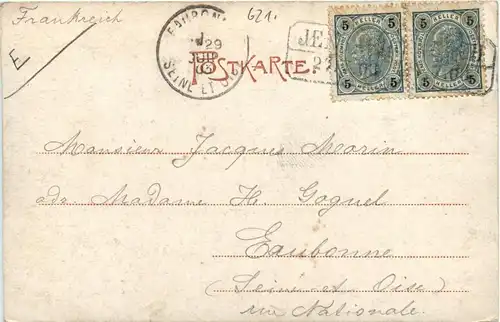 Frankreich
621.
E
EAUBONNE
29
SEINE ET O
POSTKARTE
5 HELLER 5
5 HELLER 5
Monsieur Jacques Morin
adr. Madame H. Goguel
Eaubonne
(Seine-et-Oise)
rue Nationale.